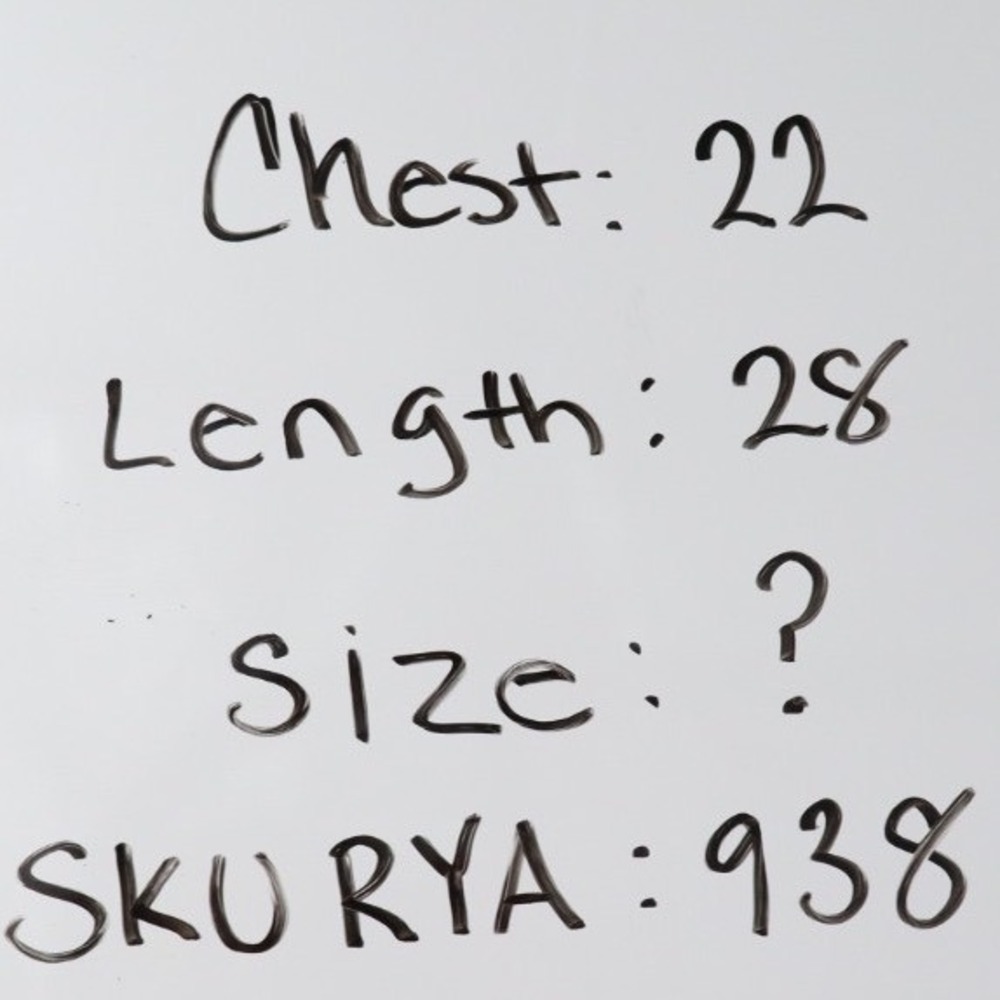 Chest: 22
Length: 28
Size: ?
SKU RYA: 938